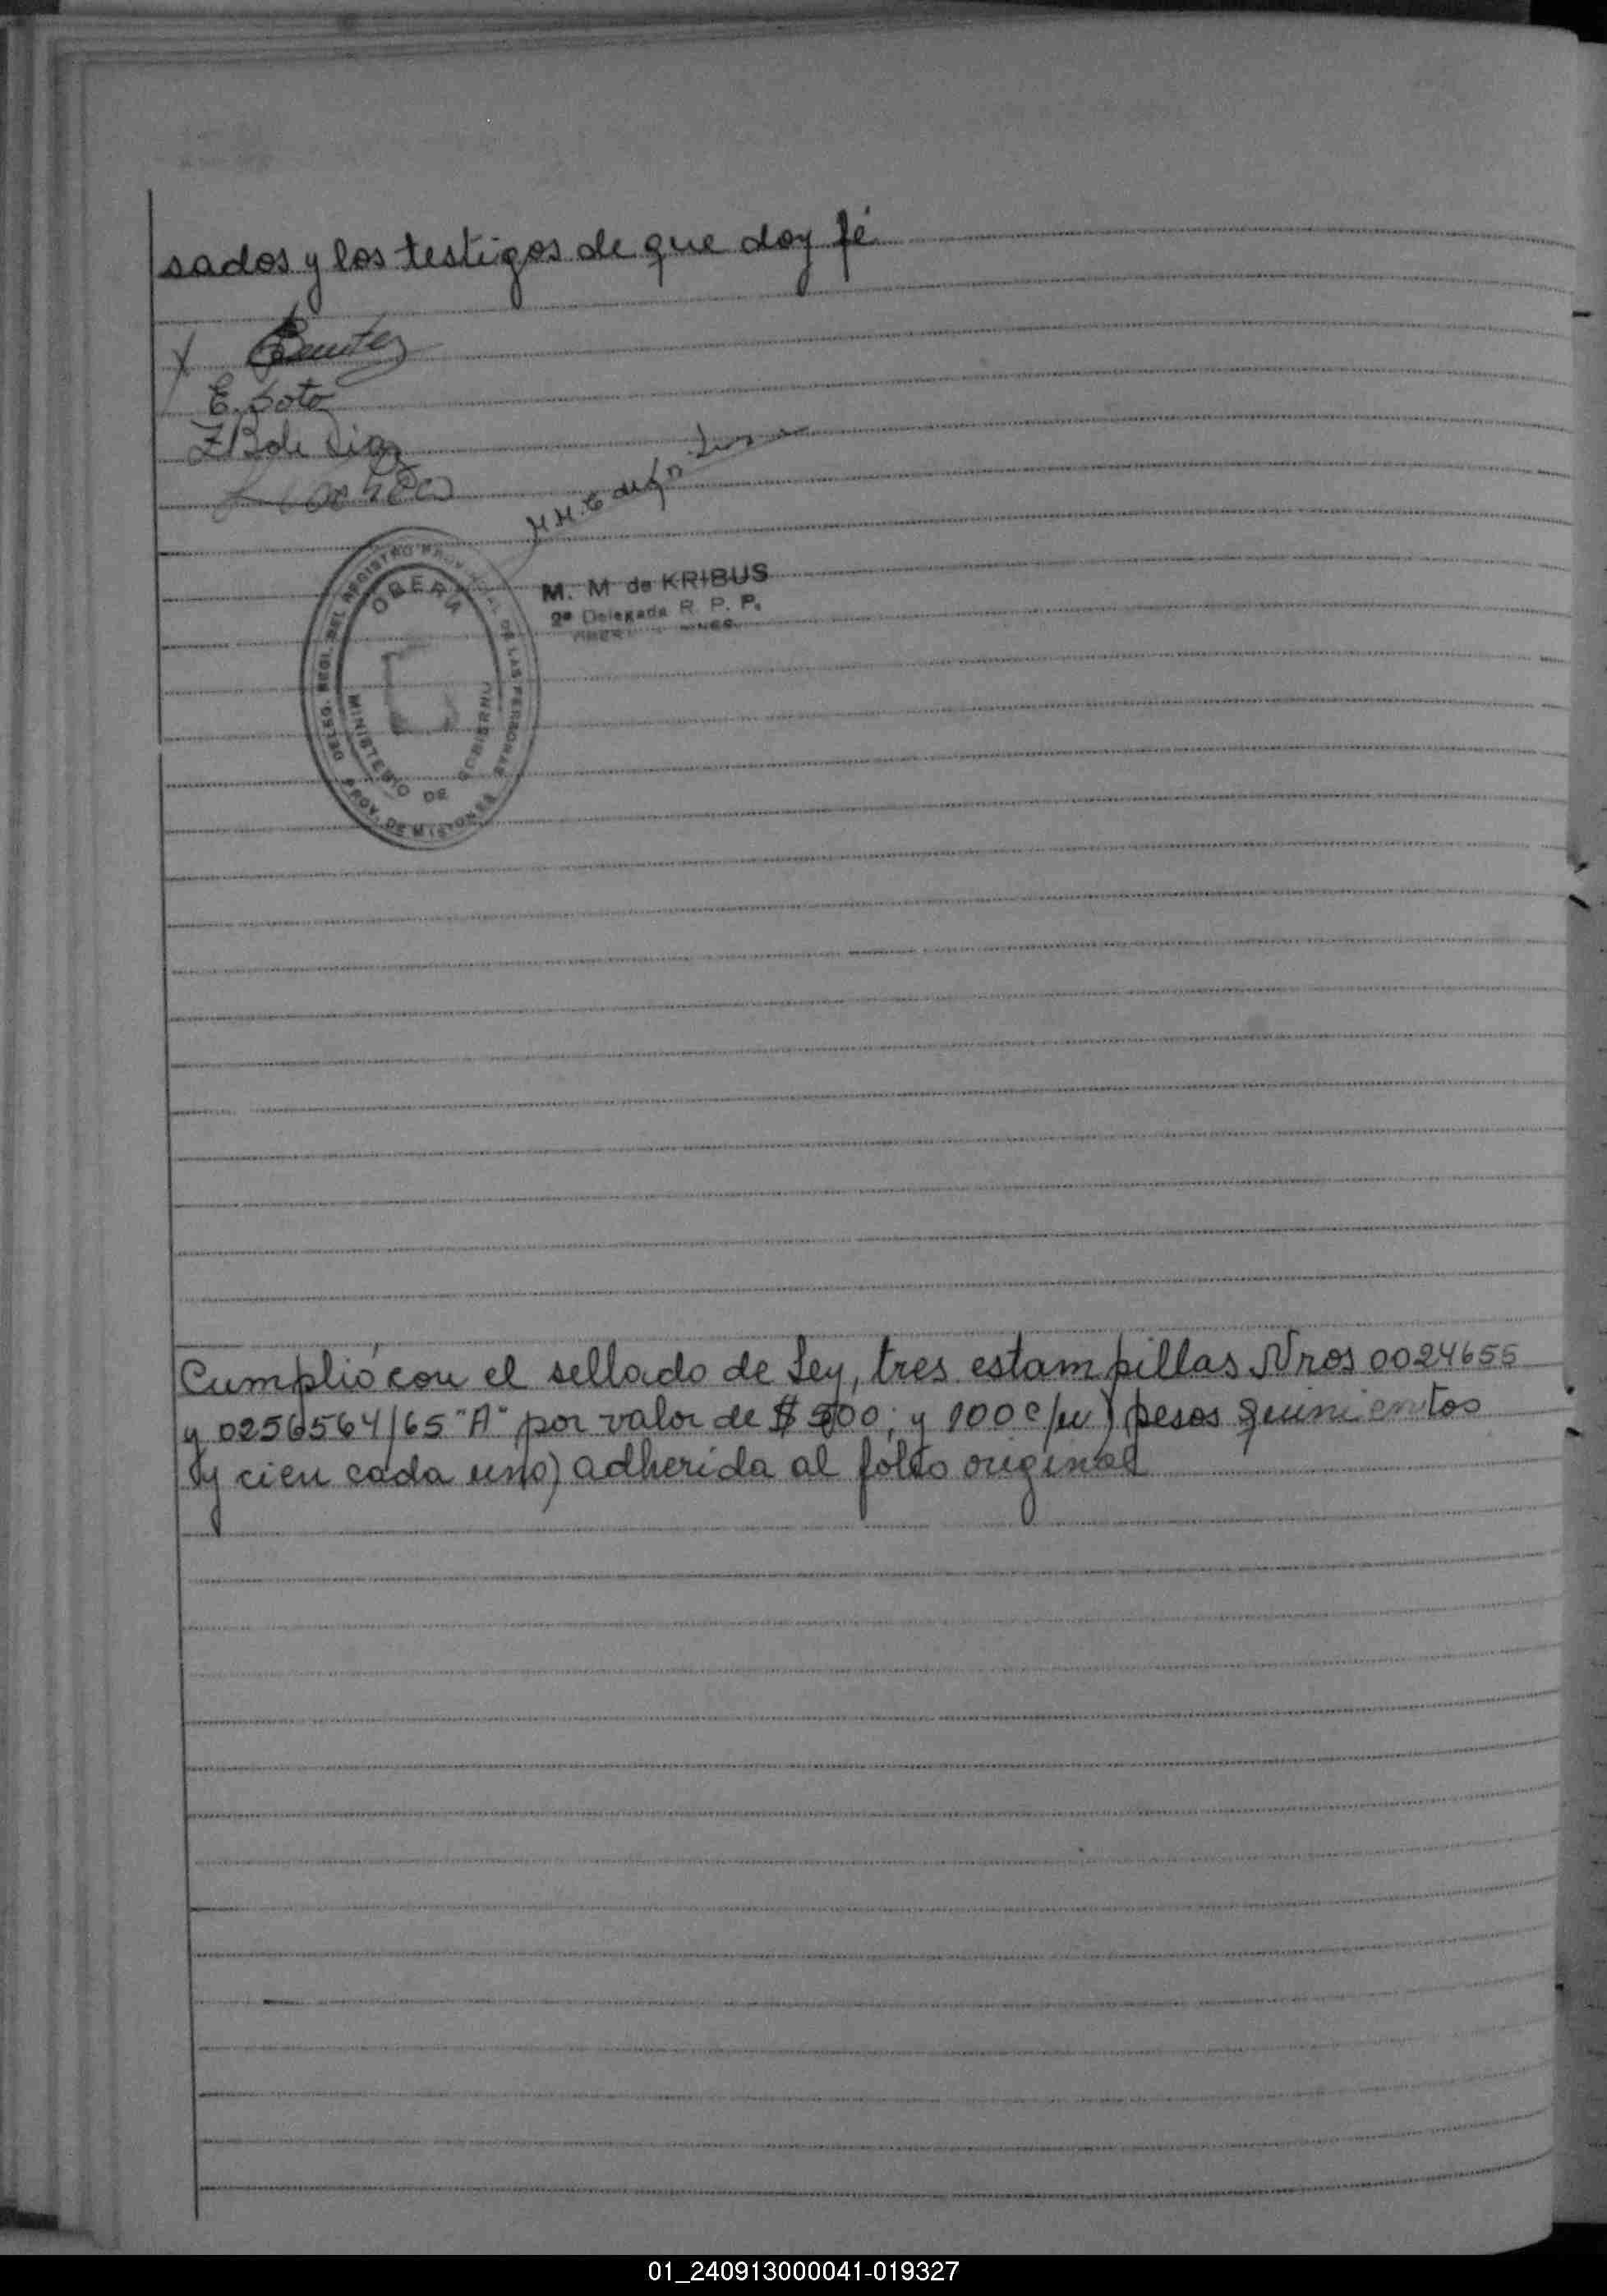 sados y los testigos de que doy fé
Benitez
E. Soto
Diaz
M. M de KRIBUS
2ª Delegada R. P. P.
DELEG. REGI. DEL REGISTRO PROVINCIAL DE LAS PERSONAS
OBERA
MINISTERIO DE GOBIERNO
PROV. DE MISIONES
Cumplió con el sellado de Ley, tres estampillas Nros 0024655
y 0256564/65 "A" por valor de $ 500; y 100 c/u) pesos quinientos
y cien cada uno) adherida al folio original
01_240913000041-019327